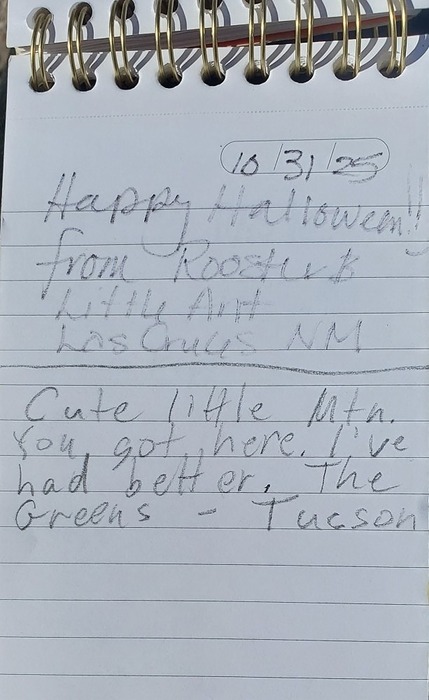 10/31/25
Happy Halloween!!
from Rooster &
Little Ant
Las Cruces NM
Cute little Mtn.
You got here. I've
had better. The
Greens - Tucson